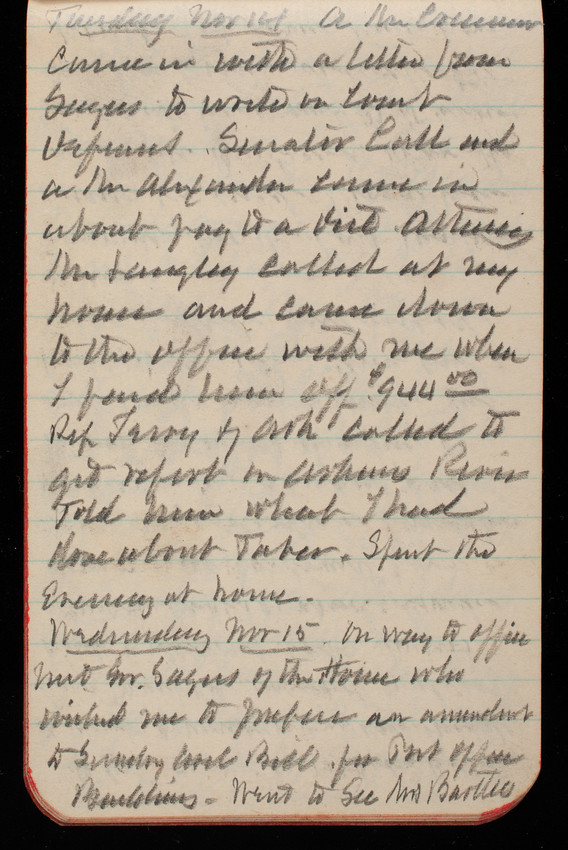 Tuesday Nov 14 A Mr
Came in with a letter from
Sayers to write on Coast
Defenses. Senator Call and
a Mr Alexander came in
about pay to a
Mr Langley called at my
house and came down
to the office with me when
I paid him off $944 00
Rep Terry of Ark called to
get report on Arkans River
Told him what I had
done about Taber. Spent the
Evening at home.
Wednesday Nov 15. On way to office
met Gov. Sayers of the House who
wished me to prepare an amendment
to Sundry Civil Bill for Post office
Buildings. Went to See Mrs Bartlett